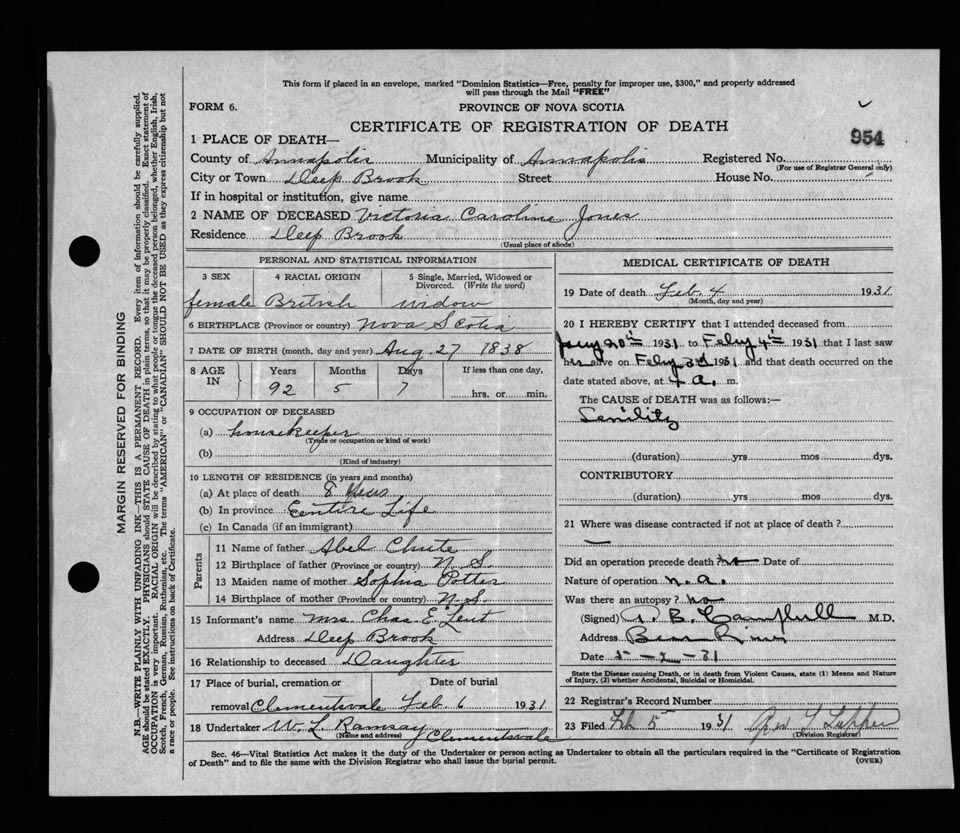 This form if placed in an envelope, marked "Dominion Statistics—Free, penalty for improper use, $300," and properly addressed
will pass through the Mail "FREE"
FORM 6. PROVINCE OF NOVA SCOTIA
CERTIFICATE OF REGISTRATION OF DEATH
954
1 PLACE OF DEATH—
County of Annapolis Municipality of Annapolis Registered No.
(For use of Registrar General only)
City or Town Deep Brook Street House No.
If in hospital or institution, give name
2 NAME OF DECEASED Victoria Caroline Jones
Residence Deep Brook
(Usual place of abode)
PERSONAL AND STATISTICAL INFORMATION
3 SEX 4 RACIAL ORIGIN 5 Single, Married, Widowed or
Divorced. (Write the word)
female British widow
6 BIRTHPLACE (Province or country) Nova Scotia
7 DATE OF BIRTH (month, day and year) Aug. 27 1838
8 AGE IN Years Months Days If less than one day,
92 5 7 hrs. or min.
9 OCCUPATION OF DECEASED
(a) housekeeper
(Trade or occupation or kind of work)
(b)
(Kind of industry)
10 LENGTH OF RESIDENCE (in years and months)
(a) At place of death 8 Years
(b) In province Entire Life
(c) In Canada (if an immigrant)
Parents
11 Name of father Abel Chute
12 Birthplace of father (Province or country) N. S.
13 Maiden name of mother Sophia Potter
14 Birthplace of mother (Province or country) N. S.
15 Informant's name Mrs. Chas E. Lent
Address Deep Brook
16 Relationship to deceased Daughter
17 Place of burial, cremation or Date of burial
removal Clementsvale Feb 6 1931
18 Undertaker W. L. Ramsay Clementsvale
(Name and address)
MEDICAL CERTIFICATE OF DEATH
19 Date of death Feb. 4 1931
(Month, day and year)
20 I HEREBY CERTIFY that I attended deceased from
Jany 20th 1931 to Feby 4th 1931 that I last saw
her alive on Feby 3rd 1931 and that death occurred on the
date stated above, at a. m.
The CAUSE OF DEATH was as follows:—
Senility
(duration) yrs mos dys.
CONTRIBUTORY
(duration) yrs mos dys.
21 Where was disease contracted if not at place of death?
—
Did an operation precede death no Date of
Nature of operation n. a.
Was there an autopsy? no
(Signed) B. Campbell M.D.
Address Bear River
Date 5-2-31
State the Disease causing Death, or in death from Violent Causes, state (1) Means and Nature
of Injury, (2) whether Accidental, Suicidal or Homicidal.
22 Registrar's Record Number
23 Filed Feb 5 1931
(Division Registrar)
Sec. 46—Vital Statistics Act makes it the duty of the Undertaker or person acting as Undertaker to obtain all the particulars required in the "Certificate of Registration
of Death" and to file the same with the Division Registrar who shall issue the burial permit.
(OVER)
MARGIN RESERVED FOR BINDING
N.B.—WRITE PLAINLY WITH UNFADING INK—THIS IS A PERMANENT RECORD. Every item of information should be carefully supplied.
AGE should be stated EXACTLY. PHYSICIANS should STATE CAUSE OF DEATH in plain terms, so that it may be properly classified. Exact statement of
OCCUPATION is very important. RACIAL ORIGIN will be described by stating to what people or tongue the deceased person belonged, whether English, Irish,
Scotch, French, German, Russian, Ruthenian, etc. The terms "AMERICAN" or "CANADIAN" SHOULD NOT BE USED as they express citizenship but not
a race or people. See instructions on back of Certificate.